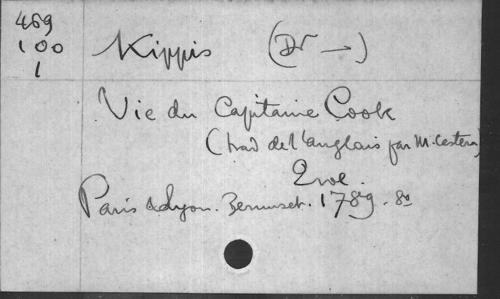 469
100
1
Kippis (Dr —)
Vie du Capitaine Cook
(trad de l'anglais par M. Castera)
2 vol.
Paris & Lyon. Bernuset. 1789. 8o